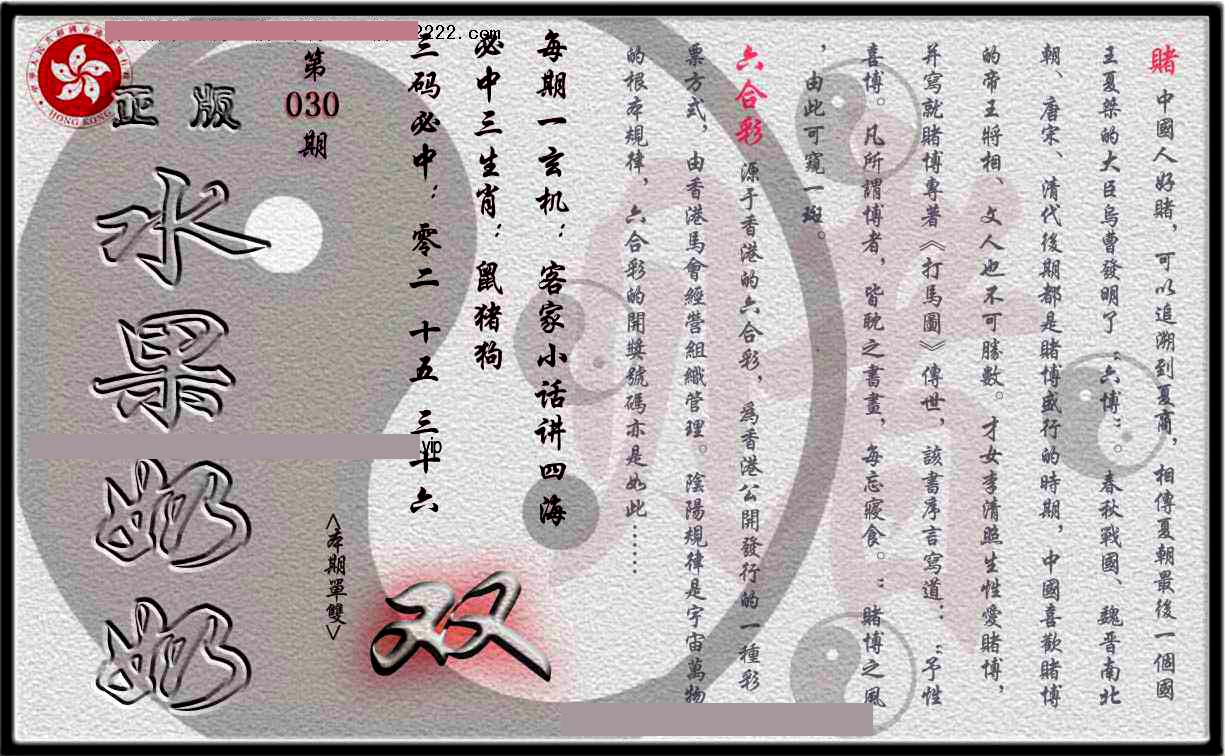 賭 中國人好賭，可以追溯到夏商，相傳夏朝最後一個國
王夏桀的大臣烏曹發明了“六博”。春秋戰國、魏晉南北
朝、唐宋、清代後期都是賭博盛行的時期，中國喜歡賭博
的帝王將相、文人也不可勝數。才女李清照生性愛賭博，
并寫就賭博專著《打馬圖》傳世，該書序言寫道：“予性
喜博。凡所謂博者，皆耽之書晝，每忘寢食。”賭博之風
，由此可窺一斑。
六合彩 源于香港的六合彩，為香港公開發行的一種彩
票方式，由香港馬會經營組織管理。陰陽規律是宇宙萬物
的根本規律，六合彩的開獎號碼亦是如此……
每期一玄机：客家小话讲四海
必中三生肖：鼠猪狗
三码必中：零二 十五 三十六
第
030
期
正版
水果奶奶
<本期單雙>
双
2222.com
vip
HONG KONG